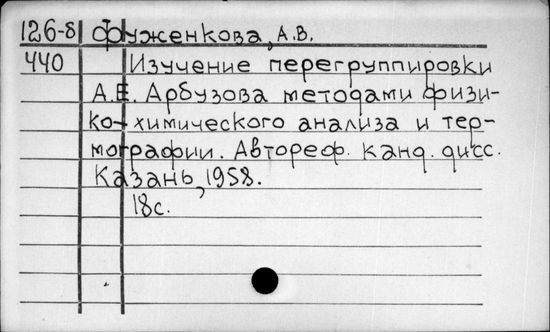 126-8 Фуженкова, А.В.
440 Изучение перегруппировки
А.Е. Арбузова методами физи-
ко-химического анализа и тер-
мографии. Автореф. канд. дисс.
Казань, 1958.
18с.